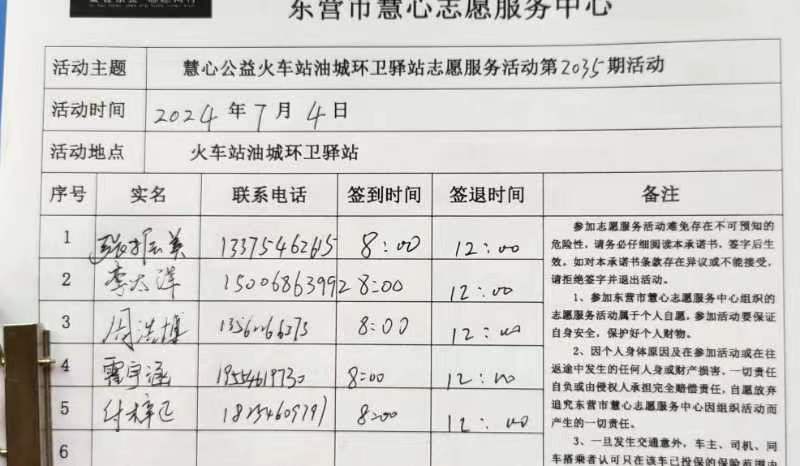 东营市慧心志愿服务中心
活动主题 慧心公益火车站油城环卫驿站志愿服务活动第2035期活动
活动时间 2024年7月4日
活动地点 火车站油城环卫驿站
序号 实名 联系电话 签到时间 签退时间 备注
1 13375462615 8:00 12:00
2 李大洋 15006863992 8:00 12:00
3 周浩博 8:00 12:00
4 霍宇涵 19554619730 8:00 12:00
5 付梓正 18254609791 8:00 12:00
6
参加志愿服务活动难免存在不可预知的
危险性，请务必仔细阅读本承诺书，签字后生
效。如对本承诺书条款存在异议或不能接受，
请拒绝签字并退出活动。
1、参加东营市慧心志愿服务中心组织的
志愿服务活动属于个人自愿，参加活动要保证
自身安全，保护好个人财物。
2、因个人身体原因及在参加活动或在往
返途中发生的任何人身或财产损害，一切责任
自负或由侵权人承担完全赔偿责任，自愿放弃
追究东营市慧心志愿服务中心因组织活动而
产生的一切责任。
3、一旦发生交通意外，车主、司机、同
车搭乘者认可只在该车已投保的保险范围内